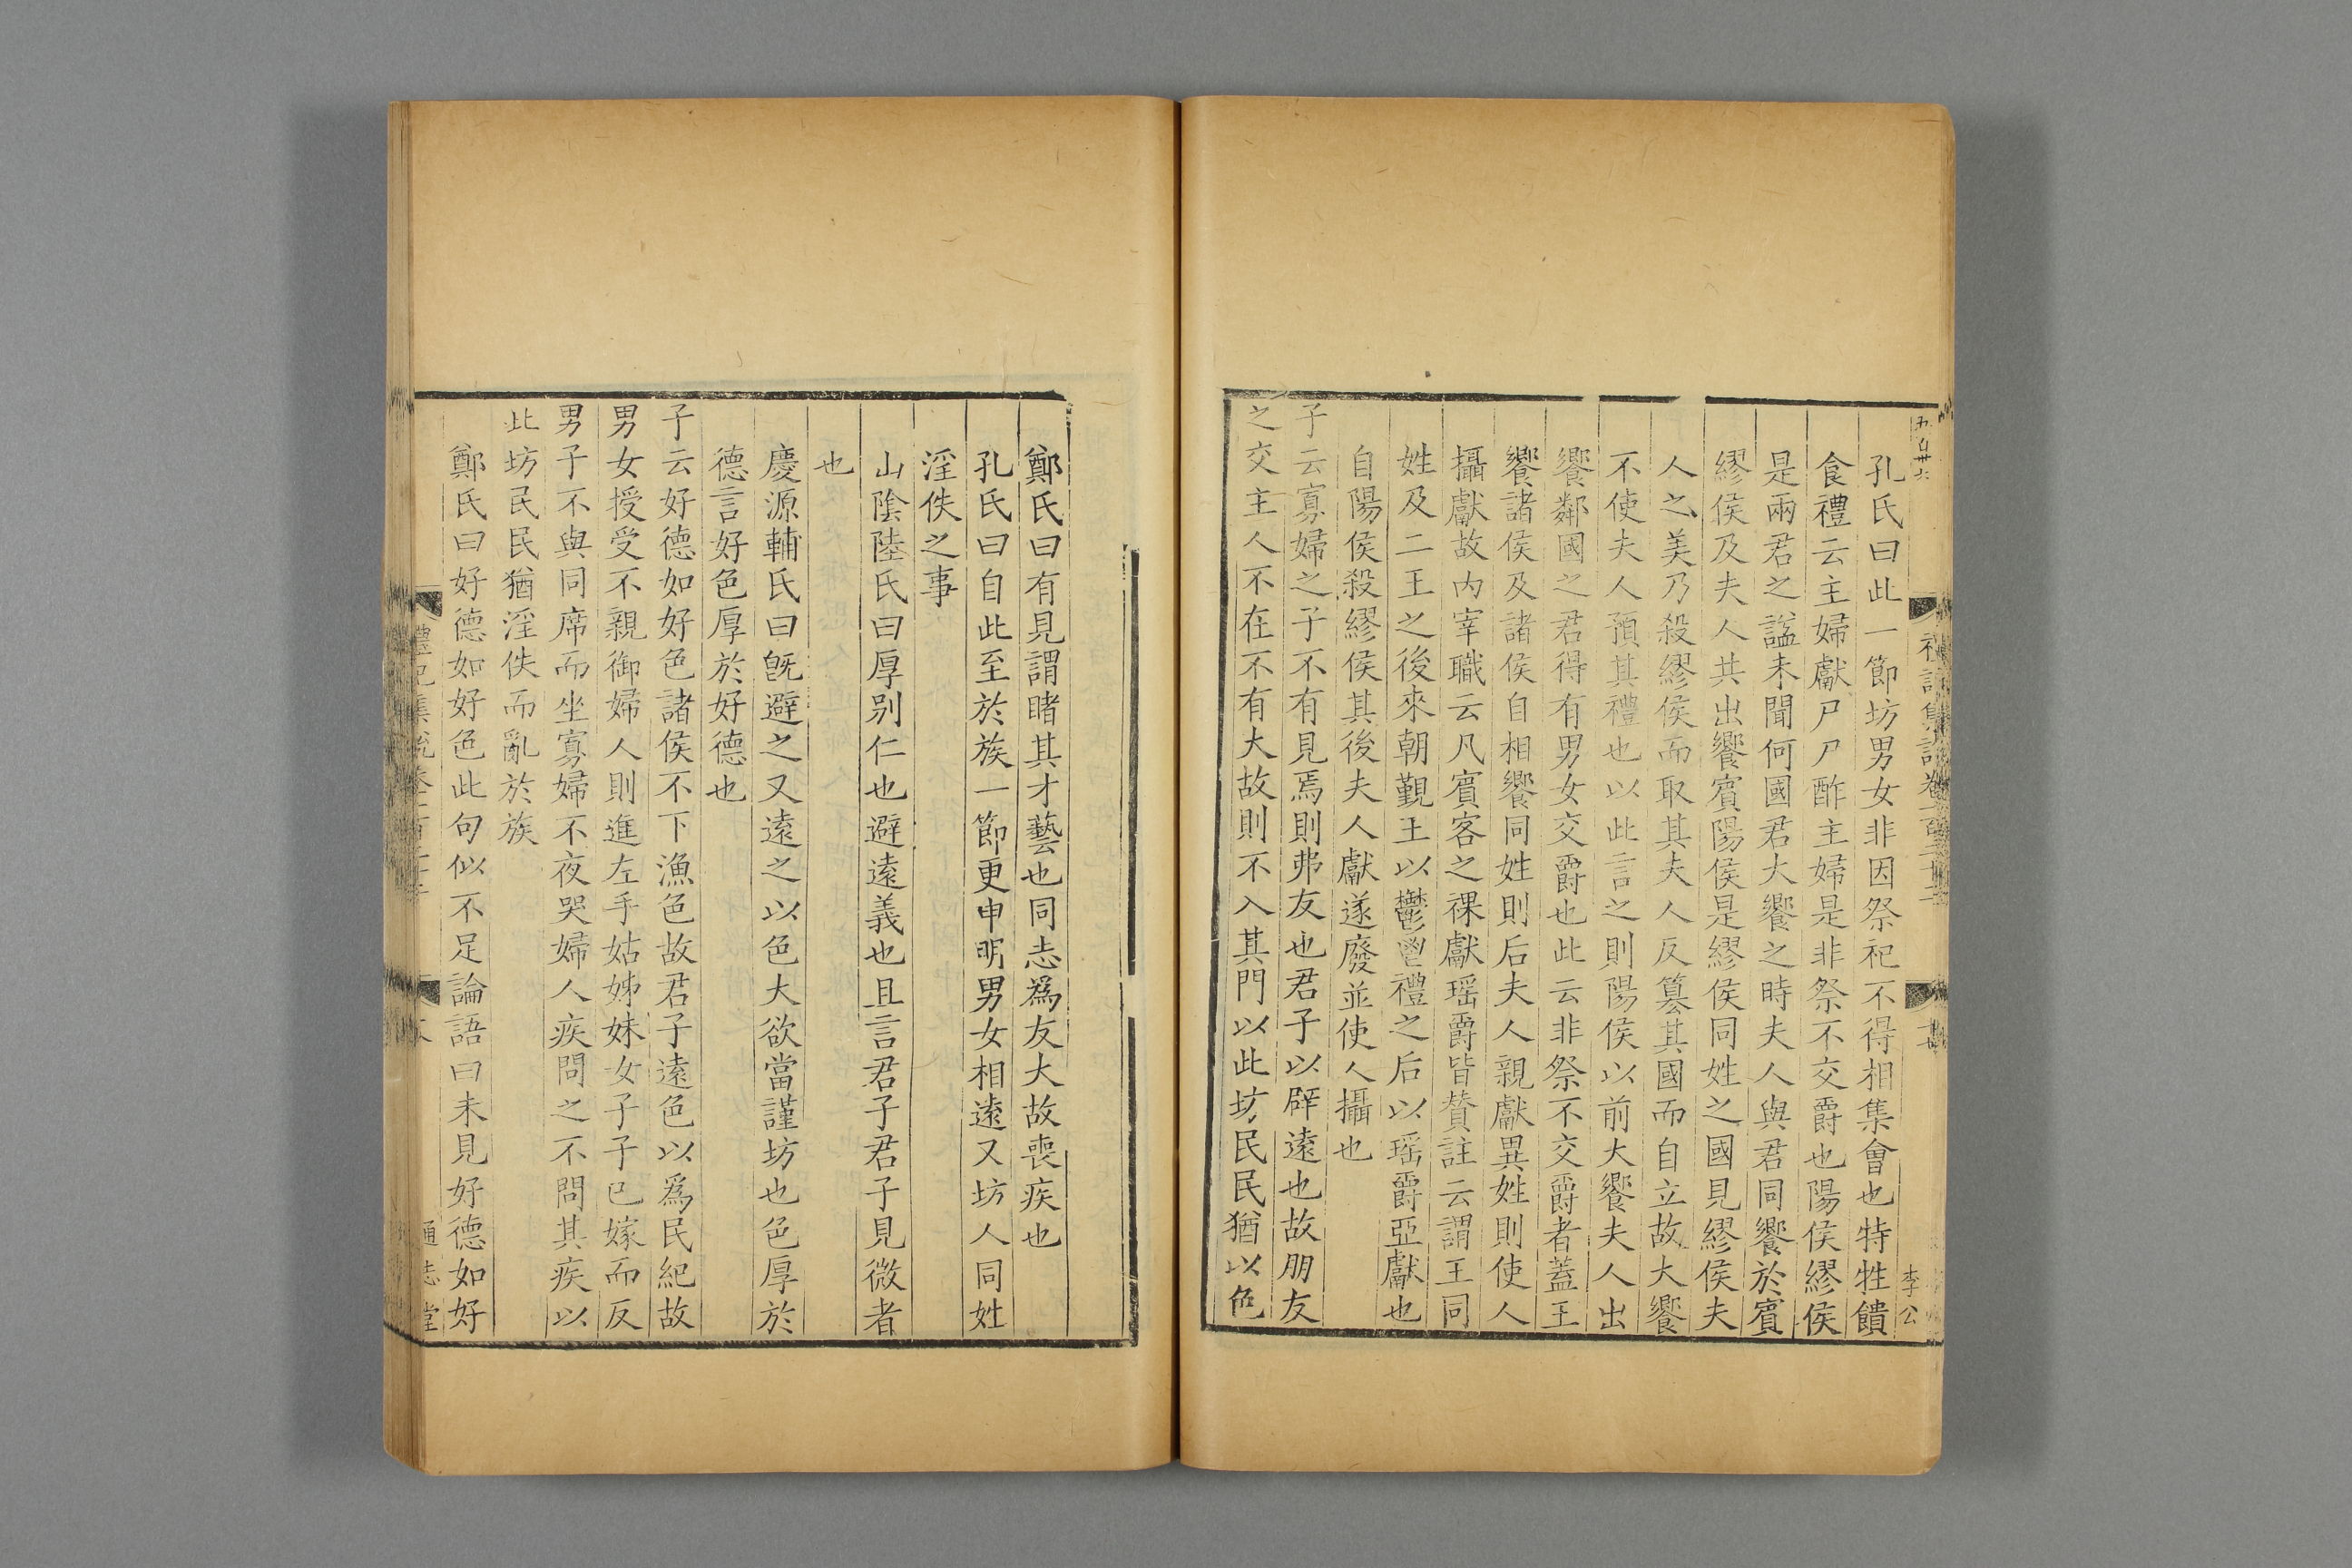 孔氏曰此一節坊男女非因祭祀不得相集會也特牲饋
食禮云主婦獻尸尸酢主婦是非祭不交爵也陽侯繆侯
是兩君之諡未聞何國君大饗之時夫人與君同饗於賓
繆侯及夫人共出饗賓陽侯是繆侯同姓之國見繆侯夫
人之美乃殺繆侯而取其夫人反簒其國而自立故大饗
不使夫人預其禮也以此言之則陽侯以前大饗夫人出
饗鄰國之君得有男女交爵也此云非祭不交爵者蓋王
饗諸侯及諸侯自相饗同姓則后夫人親獻異姓則使人
攝獻故内宰職云凡賓客之祼獻瑶爵皆賛註云謂王同
姓及二王之後來朝覲王以鬱鬯禮之后以瑶爵亞獻也
自陽侯殺繆侯其後夫人獻遂廢並使人攝也
子云寡婦之子不有見焉則弗友也君子以辟遠也故朋友
之交主人不在不有大故則不入其門以此坊民民猶以色
李公
鄭氏曰有見謂睹其才藝也同志爲友大故喪疾也
孔氏曰自此至於族一節更申明男女相遠又坊人同姓
淫佚之事
山陰陸氏曰厚别仁也避遠義也且言君子君子見微者
也
慶源輔氏曰旣避之又遠之以色大欲當謹坊也色厚於
德言好色厚於好德也
子云好德如好色諸侯不下漁色故君子遠色以爲民紀故
男女授受不親御婦人則進左手姑姊妹女子子已嫁而反
男子不與同席而坐寡婦不夜哭婦人疾問之不問其疾以
此坊民民猶淫佚而亂於族
鄭氏曰好德如好色此句似不足論語曰未見好德如好
通志堂